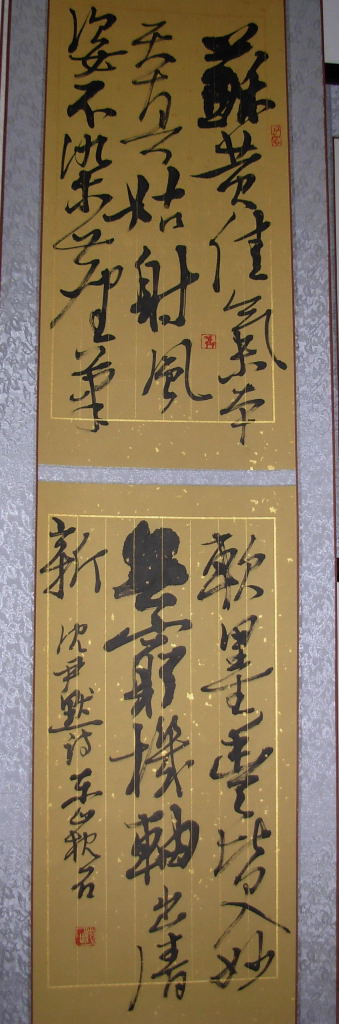 蘇黄佳氣本
天真姑射風
姿不染塵筆
軟墨豐皆入妙
無窮機軸出清
新
沈尹默詩